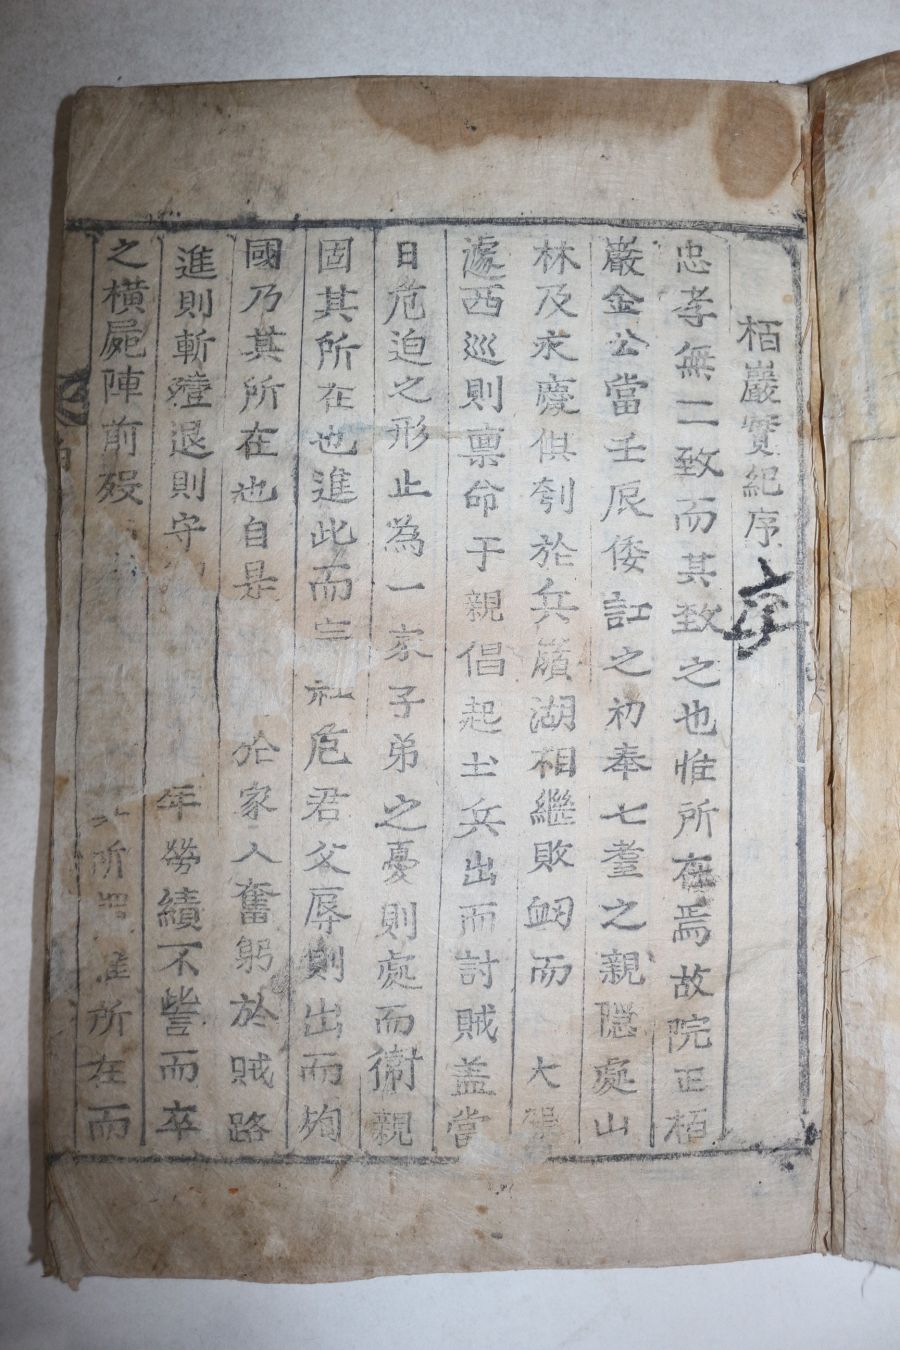 栢巖實紀序
序
忠孝無二致而其致之也惟所在焉故院正栢
巖金公當壬辰倭訌之初奉七耋之親隠處山
林及永慶俱刳於兵嶺湖相繼敗衂而 大駕
遽西巡則禀命于親倡起士兵出而討賊盖當
日危迫之形止為一家子弟之憂則處而衛親
固其所在也進此而宗社危君父辱則出而殉
國乃其所在也自是 於家人奮躬於賊路
進則斬 退則守 年勞績不訾而卒
之橫屍陣前 所 惟所在而